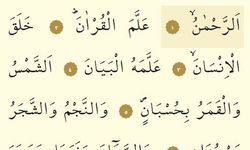 اَلرَّحْمٰنُۙ ۝١ عَلَّمَ الْقُرْاٰنَؕ ۝٢ خَلَقَ
الْاِنْسَانَۙ ۝٣ عَلَّمَهُ الْبَيَانَ ۝٤ اَلشَّمْسُ
وَالْقَمَرُ بِحُسْبَانٍۖ ۝٥ وَالنَّجْمُ وَالشَّجَرُ